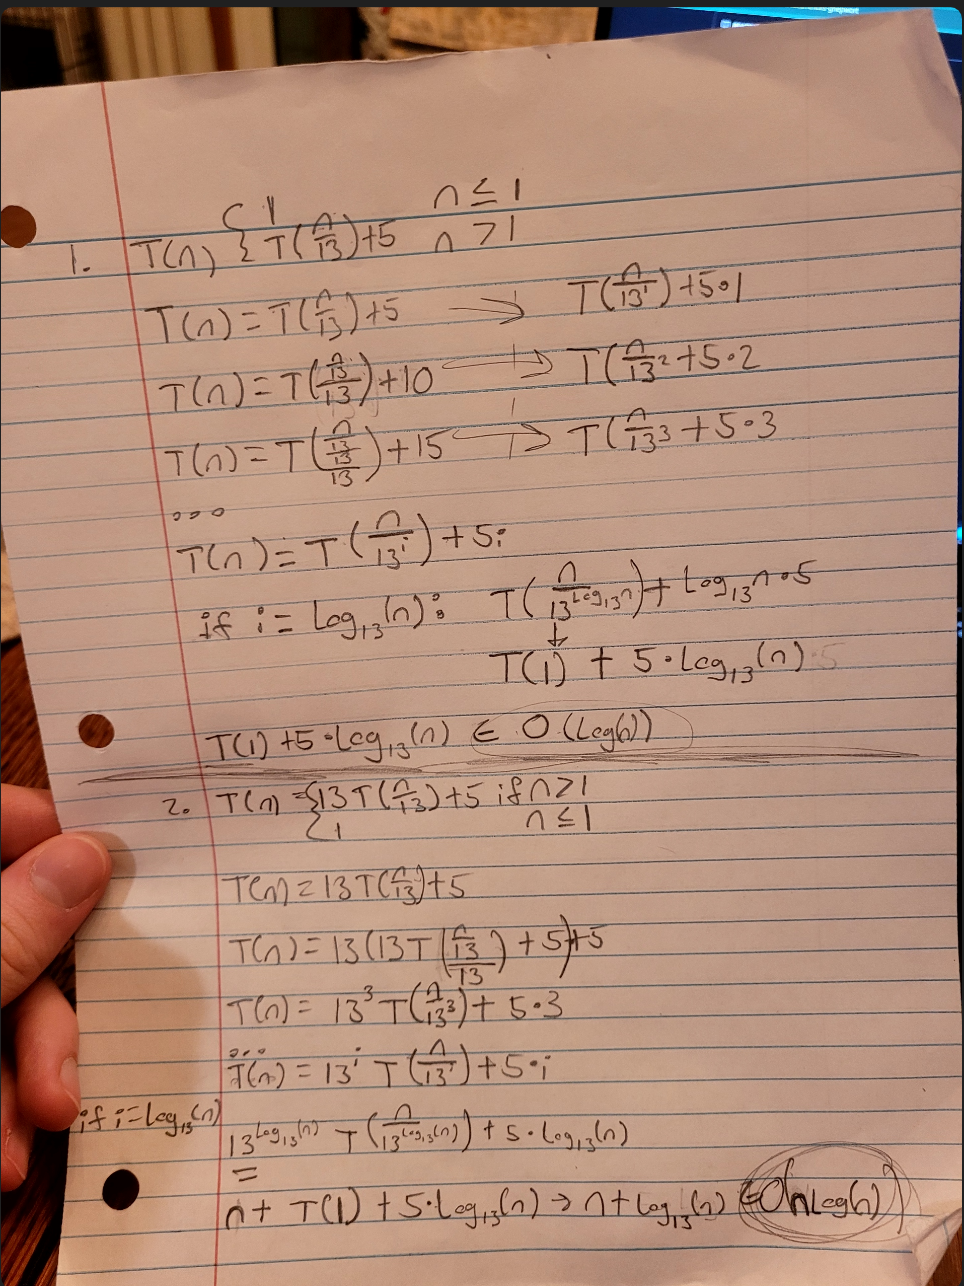 n ≤ 1
1. T(n) { 1 T(n/13)+5 n >1
T(n) = T(n/13)+5 → T(n/13¹)+5•1
T(n) = T((n/13)/13)+10 → T(n/13²+5•2
T(n) = T(((n/13)/13)/13)+15 → T(n/13³+5•3
...
T(n) = T(n/13^i)+5i
if i = Log₁₃(n): T(n/13^(Log₁₃n))+Log₁₃n•5
↓
T(1) + 5•Log₁₃(n)•5
T(1)+5•Log₁₃(n) ∈ O(Log(n))
2. T(n) = {13T(n/13)+5 if n>1
1 n ≤ 1
T(n) = 13T(n/13)+5
T(n) = 13(13T((n/13)/13)+5)+5
T(n) = 13³T(n/13³)+5•3
...
T(n) = 13^i T(n/13^i)+5•i
if i=Log₁₃(n)
13^(Log₁₃(n)) T(n/13^(Log₁₃(n)))+5•Log₁₃(n)
=
n+ T(1) + 5•Log₁₃(n) → n+Log₁₃(n) ∈ O(nLog(n))